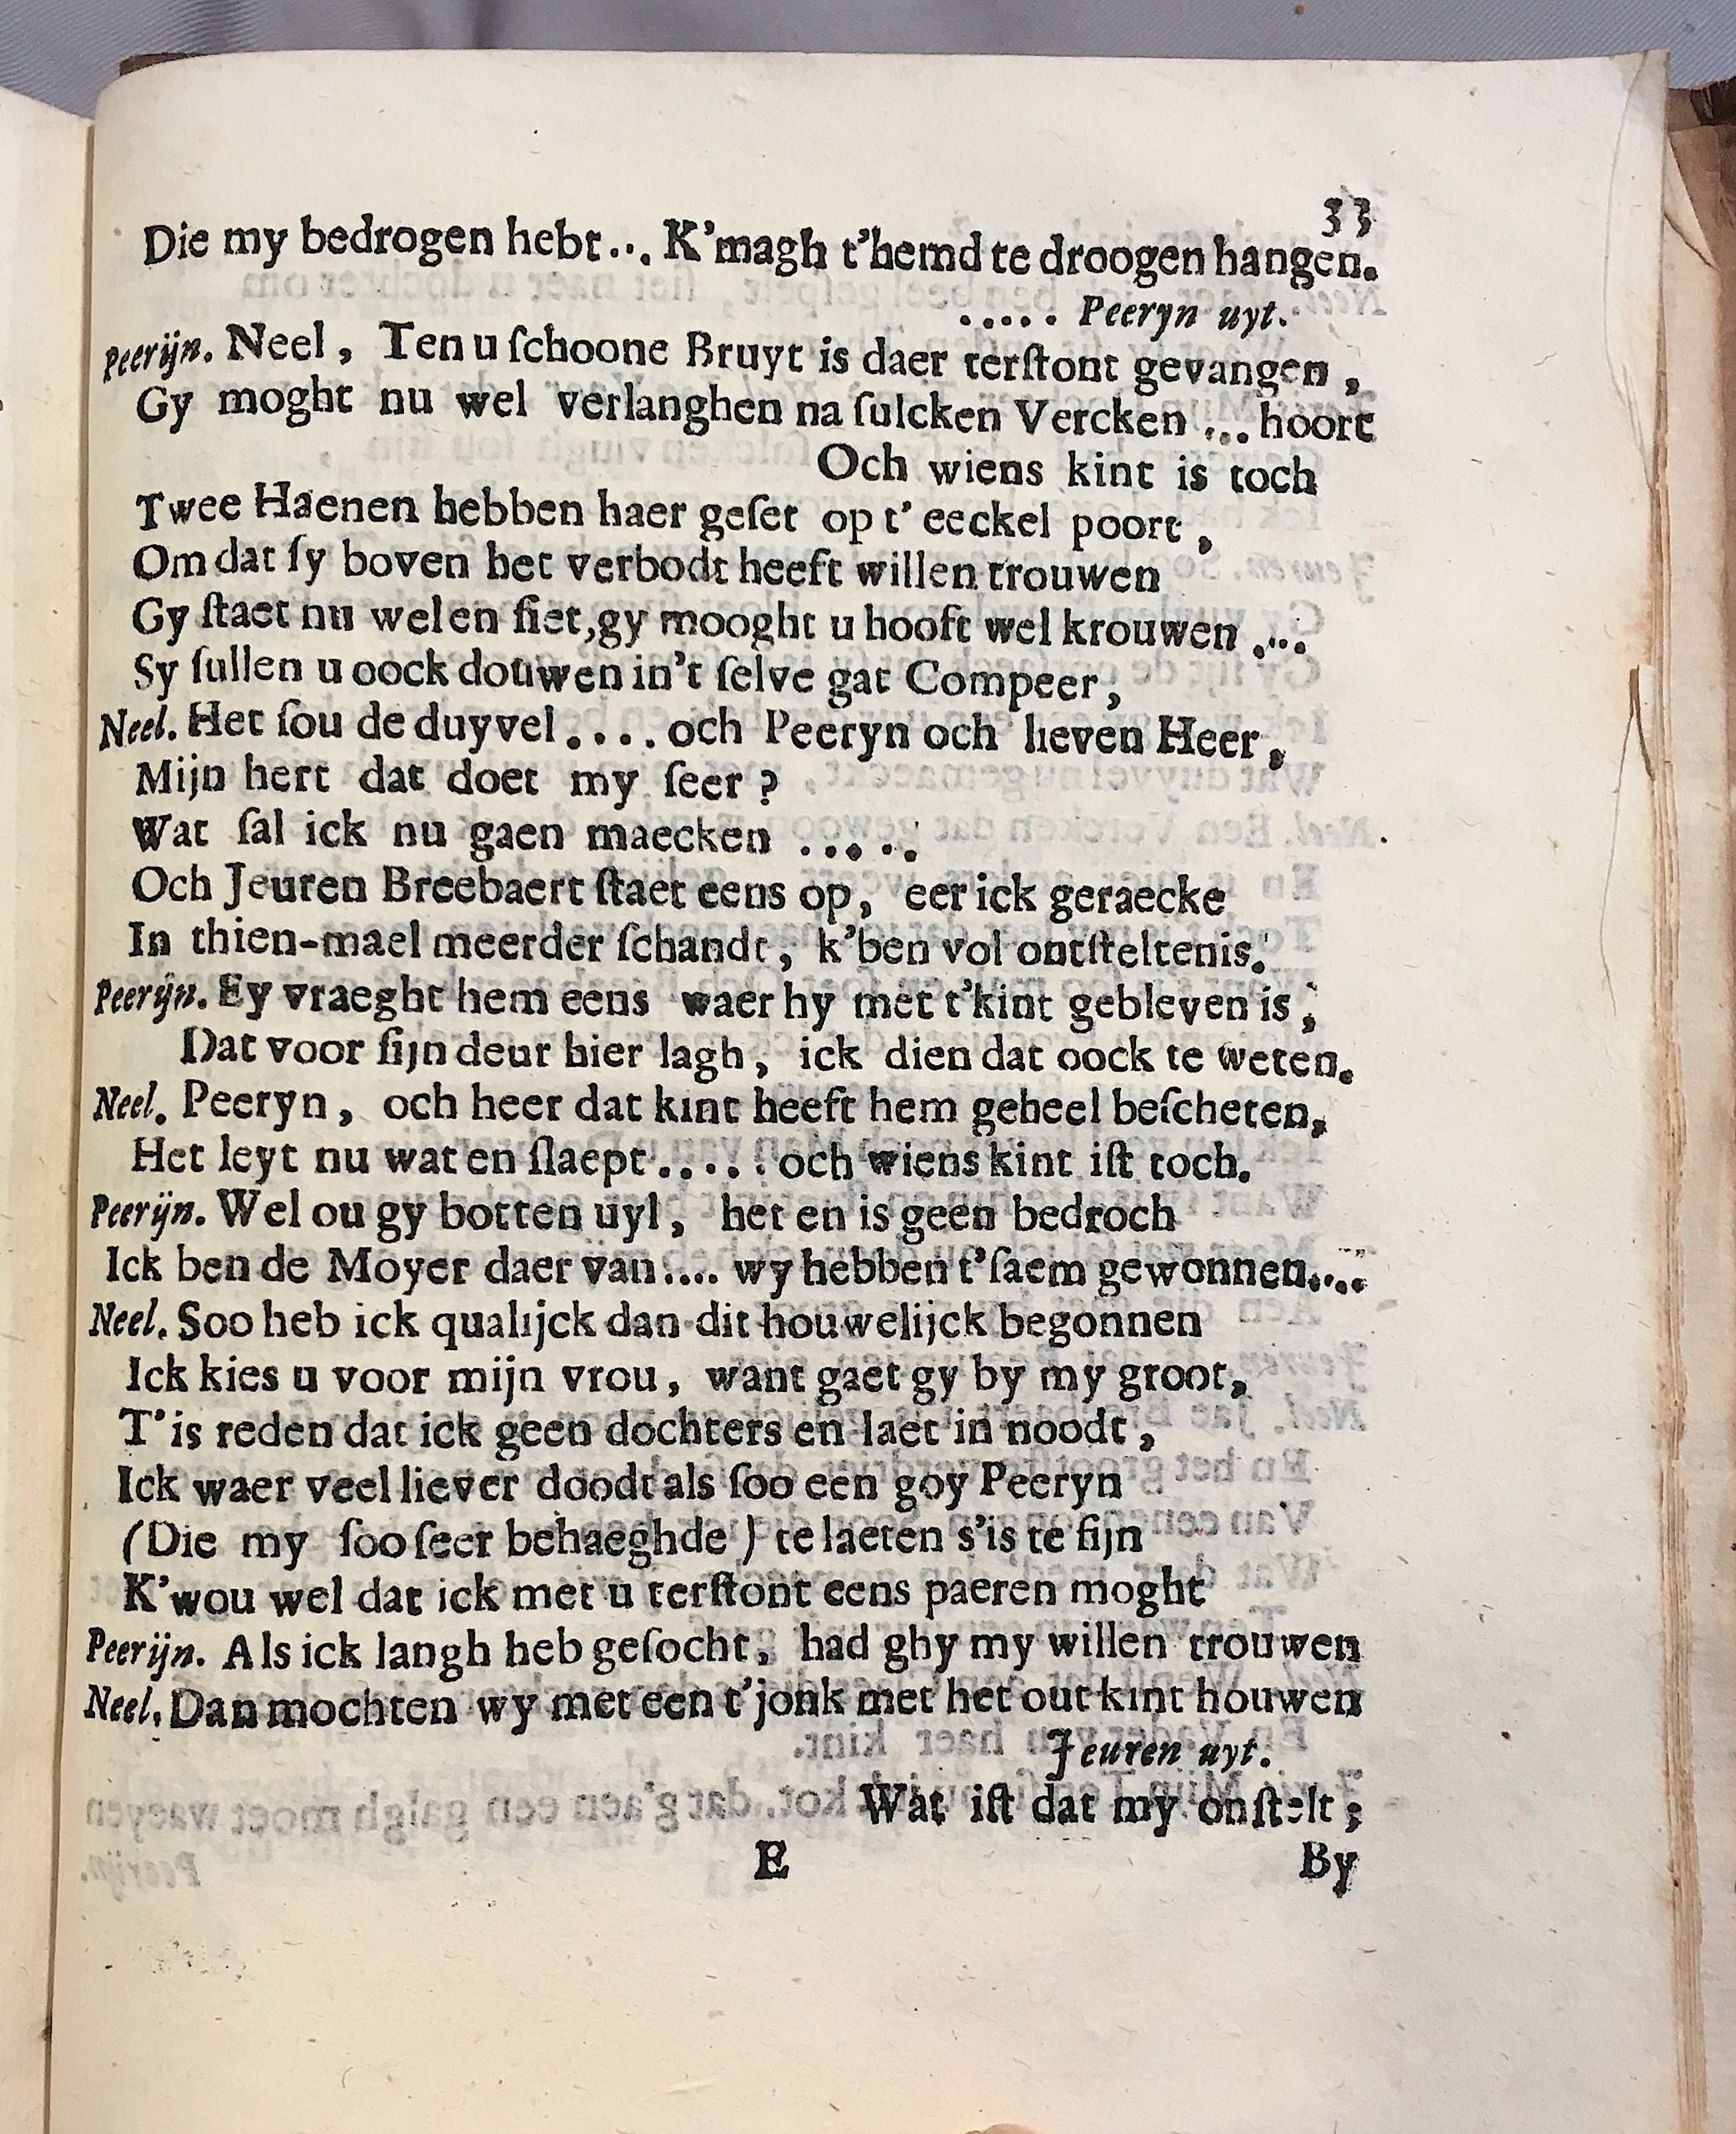 33
Die my bedrogen hebt... K'magh t'hemd te droogen hangen.
..... Peeryn uyt.
Peerijn. Neel, Ten u ſchoone Bruyt is daer terſtont gevangen,
Gy moght nu wel verlanghen na ſulcken Vercken ... hoort
Och wiens kint is toch
Twee Haenen hebben haer geſet op t' eeckel poort,
Om dat ſy boven het verbodt heeft willen trouwen
Gy ſtaet nu wel en ſiet, gy mooght u hooft wel krouwen ....
Sy ſullen u oock douwen in't ſelve gat Compeer,
Neel. Het ſou de duyvel .... och Peeryn och lieven Heer,
Mijn hert dat doet my ſeer?
Wat ſal ick nu gaen maecken .....
Och Jeuren Breebaert ſtaet eens op, eer ick geraecke
In thien-mael meerder ſchandt, k'ben vol ontſteltenis.
Peerijn. Ey vraeght hem eens waer hy met t'kint gebleven is,
Dat voor ſijn deur hier lagh, ick dien dat oock te weten.
Neel. Peeryn, och heer dat kint heeft hem geheel beſcheten,
Het leyt nu wat en ſlaept ..... och wiens kint iſt toch.
Peerijn. Wel ou gy botten uyl, het en is geen bedroch
Ick ben de Moyer daer van .... wy hebben t'ſaem gewonnen....
Neel. Soo heb ick qualijck dan dit houwelijck begonnen
Ick kies u voor mijn vrou, want gaet gy by my groot,
T'is reden dat ick geen dochters en laet in noodt,
Ick waer veel liever doodt als ſoo een goy Peeryn
(Die my ſoo ſeer behaeghde) te laeten s'is te fijn
K'wou wel dat ick met u terſtont eens paeren moght
Peerijn. Als ick langh heb geſocht, had ghy my willen trouwen
Neel. Dan mochten wy met een t'jonk met het out kint houwen
Jeuren uyt.
Wat iſt dat my onſtelt;
E By